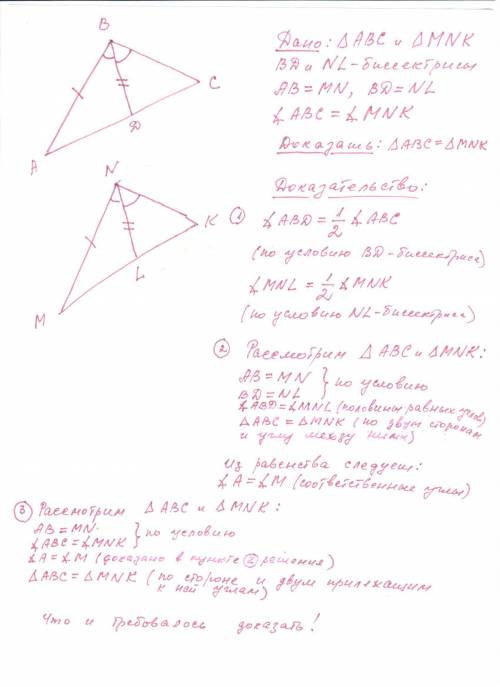 B
C
D
A
Дано: △ABC и △MNK
BD и NL - биссектрисы
AB = MN, BD = NL
∡ABC = ∡MNK
Доказать: △ABC = △MNK
N
K
L
M
Доказательство:
① ∡ABD = 1/2 ∡ABC
(по условию BD - биссектриса)
∡MNL = 1/2 ∡MNK
(по условию NL - биссектриса)
② Рассмотрим △ABC и △MNK:
AB = MN
BD = NL } по условию
∡ABD = ∡MNL (половины равных углов)
△ABC = △MNK (по двум сторонам
и углу между ними)
Из равенства следует:
∡A = ∡M (соответственные углы)
③ Рассмотрим △ABC и △MNK:
AB = MN
∡ABC = ∡MNK } по условию
∡A = ∡M (доказано в пункте ② решения)
△ABC = △MNK (по стороне и двум прилежащим
к ней углам)
Что и требовалось доказать!